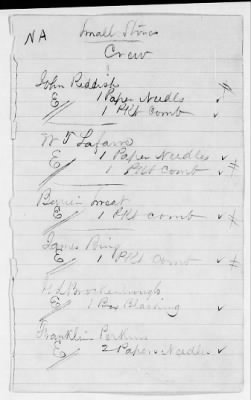 NA
Small Stores
Crew
John Reddish
E // 1 Paper Needls
1 Pkt Comb
W T Lafarr
E // 1 Paper Needles
1 Pkt Comb
Sweat
E // 1 Pkt Comb
James King
E // 1 Pkt Comb
Brockenbrough
E // 1 Box Blacking
Franklin Perkins
E // 2 Paper Needles